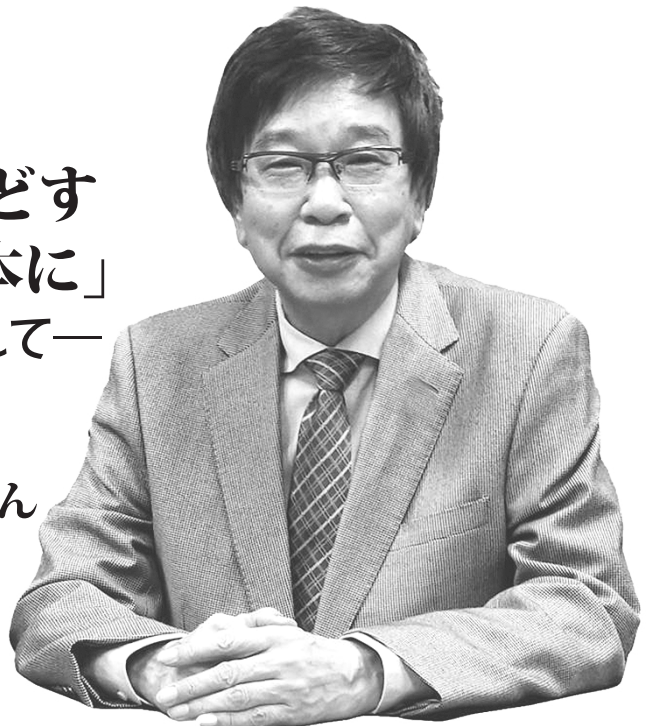 どす
本に」
れて―
ん